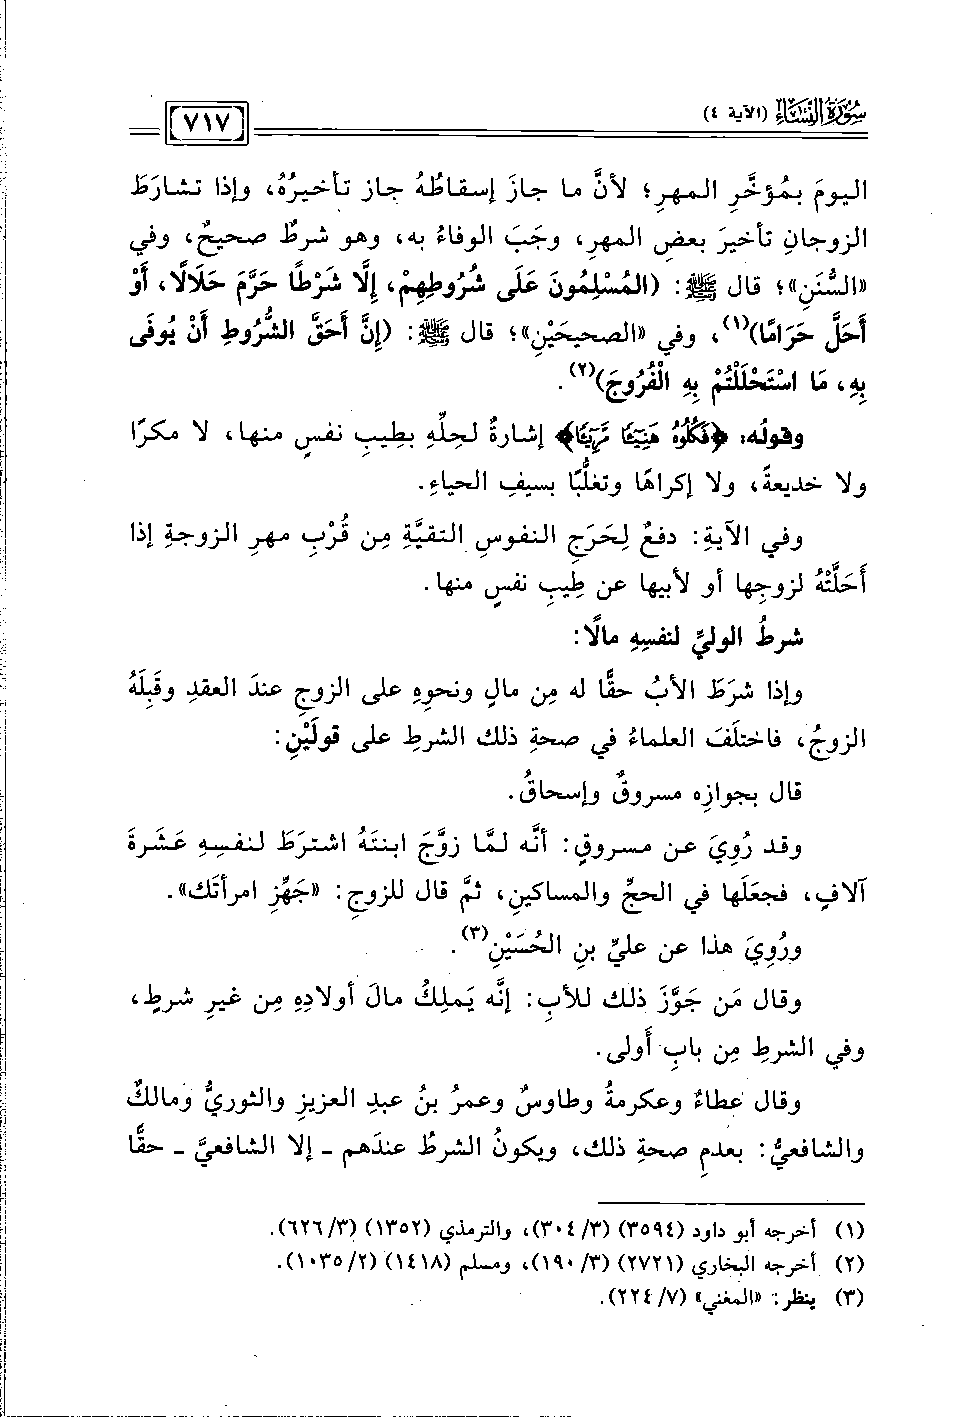 سُورَةُ النِّسَاءِ (الآية ٤)
٧١٧
اليومَ بمُؤخَّرِ المهرِ؛ لأنَّ ما جازَ إسقاطُهُ جاز تأخيرُهُ، وإذا تشارَطَ
الزوجانِ تأخيرَ بعضِ المهرِ، وجَبَ الوفاءُ به، وهو شرطٌ صحيحٌ، وفي
«السُّنَنِ»؛ قال ﷺ: (المُسْلِمُونَ عَلَى شُرُوطِهِمْ، إِلَّا شَرْطًا حَرَّمَ حَلَالًا، أَوْ
أَحَلَّ حَرَامًا)(١)، وفي «الصحيحَيْنِ»؛ قال ﷺ: (إِنَّ أَحَقَّ الشُّرُوطِ أَنْ يُوفَى
بِهِ، مَا اسْتَحْلَلْتُمْ بِهِ الْفُرُوجَ)(٢).
وقولُه: ﴿فَكُلُوهُ هَنِيئًا مَّرِيئًا﴾ إشارةٌ لحِلِّهِ بطِيبِ نفسٍ منها، لا مكرًا
ولا خديعةً، ولا إكراهًا وتغلُّبًا بسيفِ الحياءِ.
وفي الآيةِ: دفعٌ لِحَرَجِ النفوسِ التقيَّةِ مِن قُرْبِ مهرِ الزوجةِ إذا
أَحَلَّتْهُ لزوجِها أو لأبيها عن طِيبِ نفسٍ منها.
شرطُ الوليِّ لنفسِهِ مالًا:
وإذا شرَطَ الأبُ حقًّا له مِن مالٍ ونحوِهِ على الزوجِ عندَ العقدِ وقَبِلَهُ
الزوجُ، فاختلَفَ العلماءُ في صحةِ ذلك الشرطِ على قولَيْنِ:
قال بجوازِه مسروقٌ وإسحاقُ.
وقد رُوِيَ عن مسروقٍ: أنَّه لمَّا زوَّجَ ابنتَهُ اشترَطَ لنفسِهِ عَشَرةَ
آلافٍ، فجعَلَها في الحجِّ والمساكينِ، ثمَّ قال للزوجِ: «جَهِّزِ امرأتَك».
ورُوِيَ هذا عن عليِّ بنِ الحُسَيْنِ(٣).
وقال مَن جَوَّزَ ذلك للأبِ: إنَّه يَملِكُ مالَ أولادِهِ مِن غيرِ شرطٍ،
وفي الشرطِ مِن بابِ أَولى.
وقال عطاءٌ وعكرمةُ وطاوسٌ وعمرُ بنُ عبدِ العزيزِ والثوريُّ ومالكٌ
والشافعيُّ: بعدمِ صحةِ ذلك، ويكونُ الشرطُ عندَهم ـ إلا الشافعيَّ ـ حقًّا
(١) أخرجه أبو داود (٣٥٩٤) (٣/٣٠٤)، والترمذي (١٣٥٢) (٣/٦٢٦).
(٢) أخرجه البخاري (٢٧٢١) (٣/١٩٠)، ومسلم (١٤١٨) (٢/١٠٣٥).
(٣) ينظر: «المغني» (٧/٢٢٤).